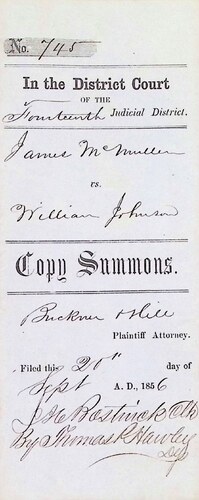 No. 745
In the District Court
OF THE
Fourteenth Judicial District.
James McMullen
vs.
William Johnson
Copy Summons.
Buckner & Hill
Plaintiff Attorney.
Filed this 20" day of
Sept A. D., 1856
J H Bostwick Clk
By Thomas R Hawley
Dep